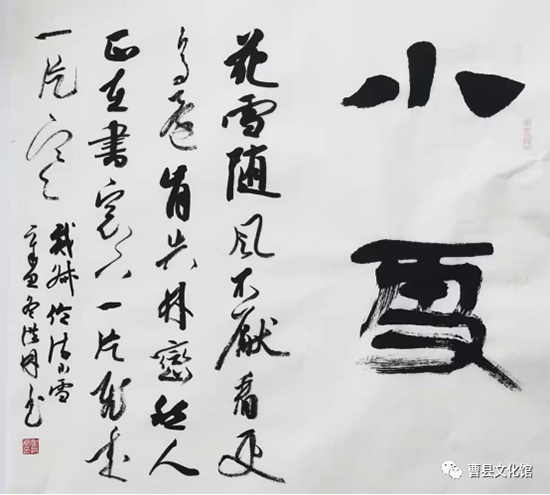 小雪
花雪随风不厭看更
多還肯失林巒愁人
正在書窗下一片飛來
一片寒
戴叔倫诗小雪
辛丑冬书
曹县文化馆